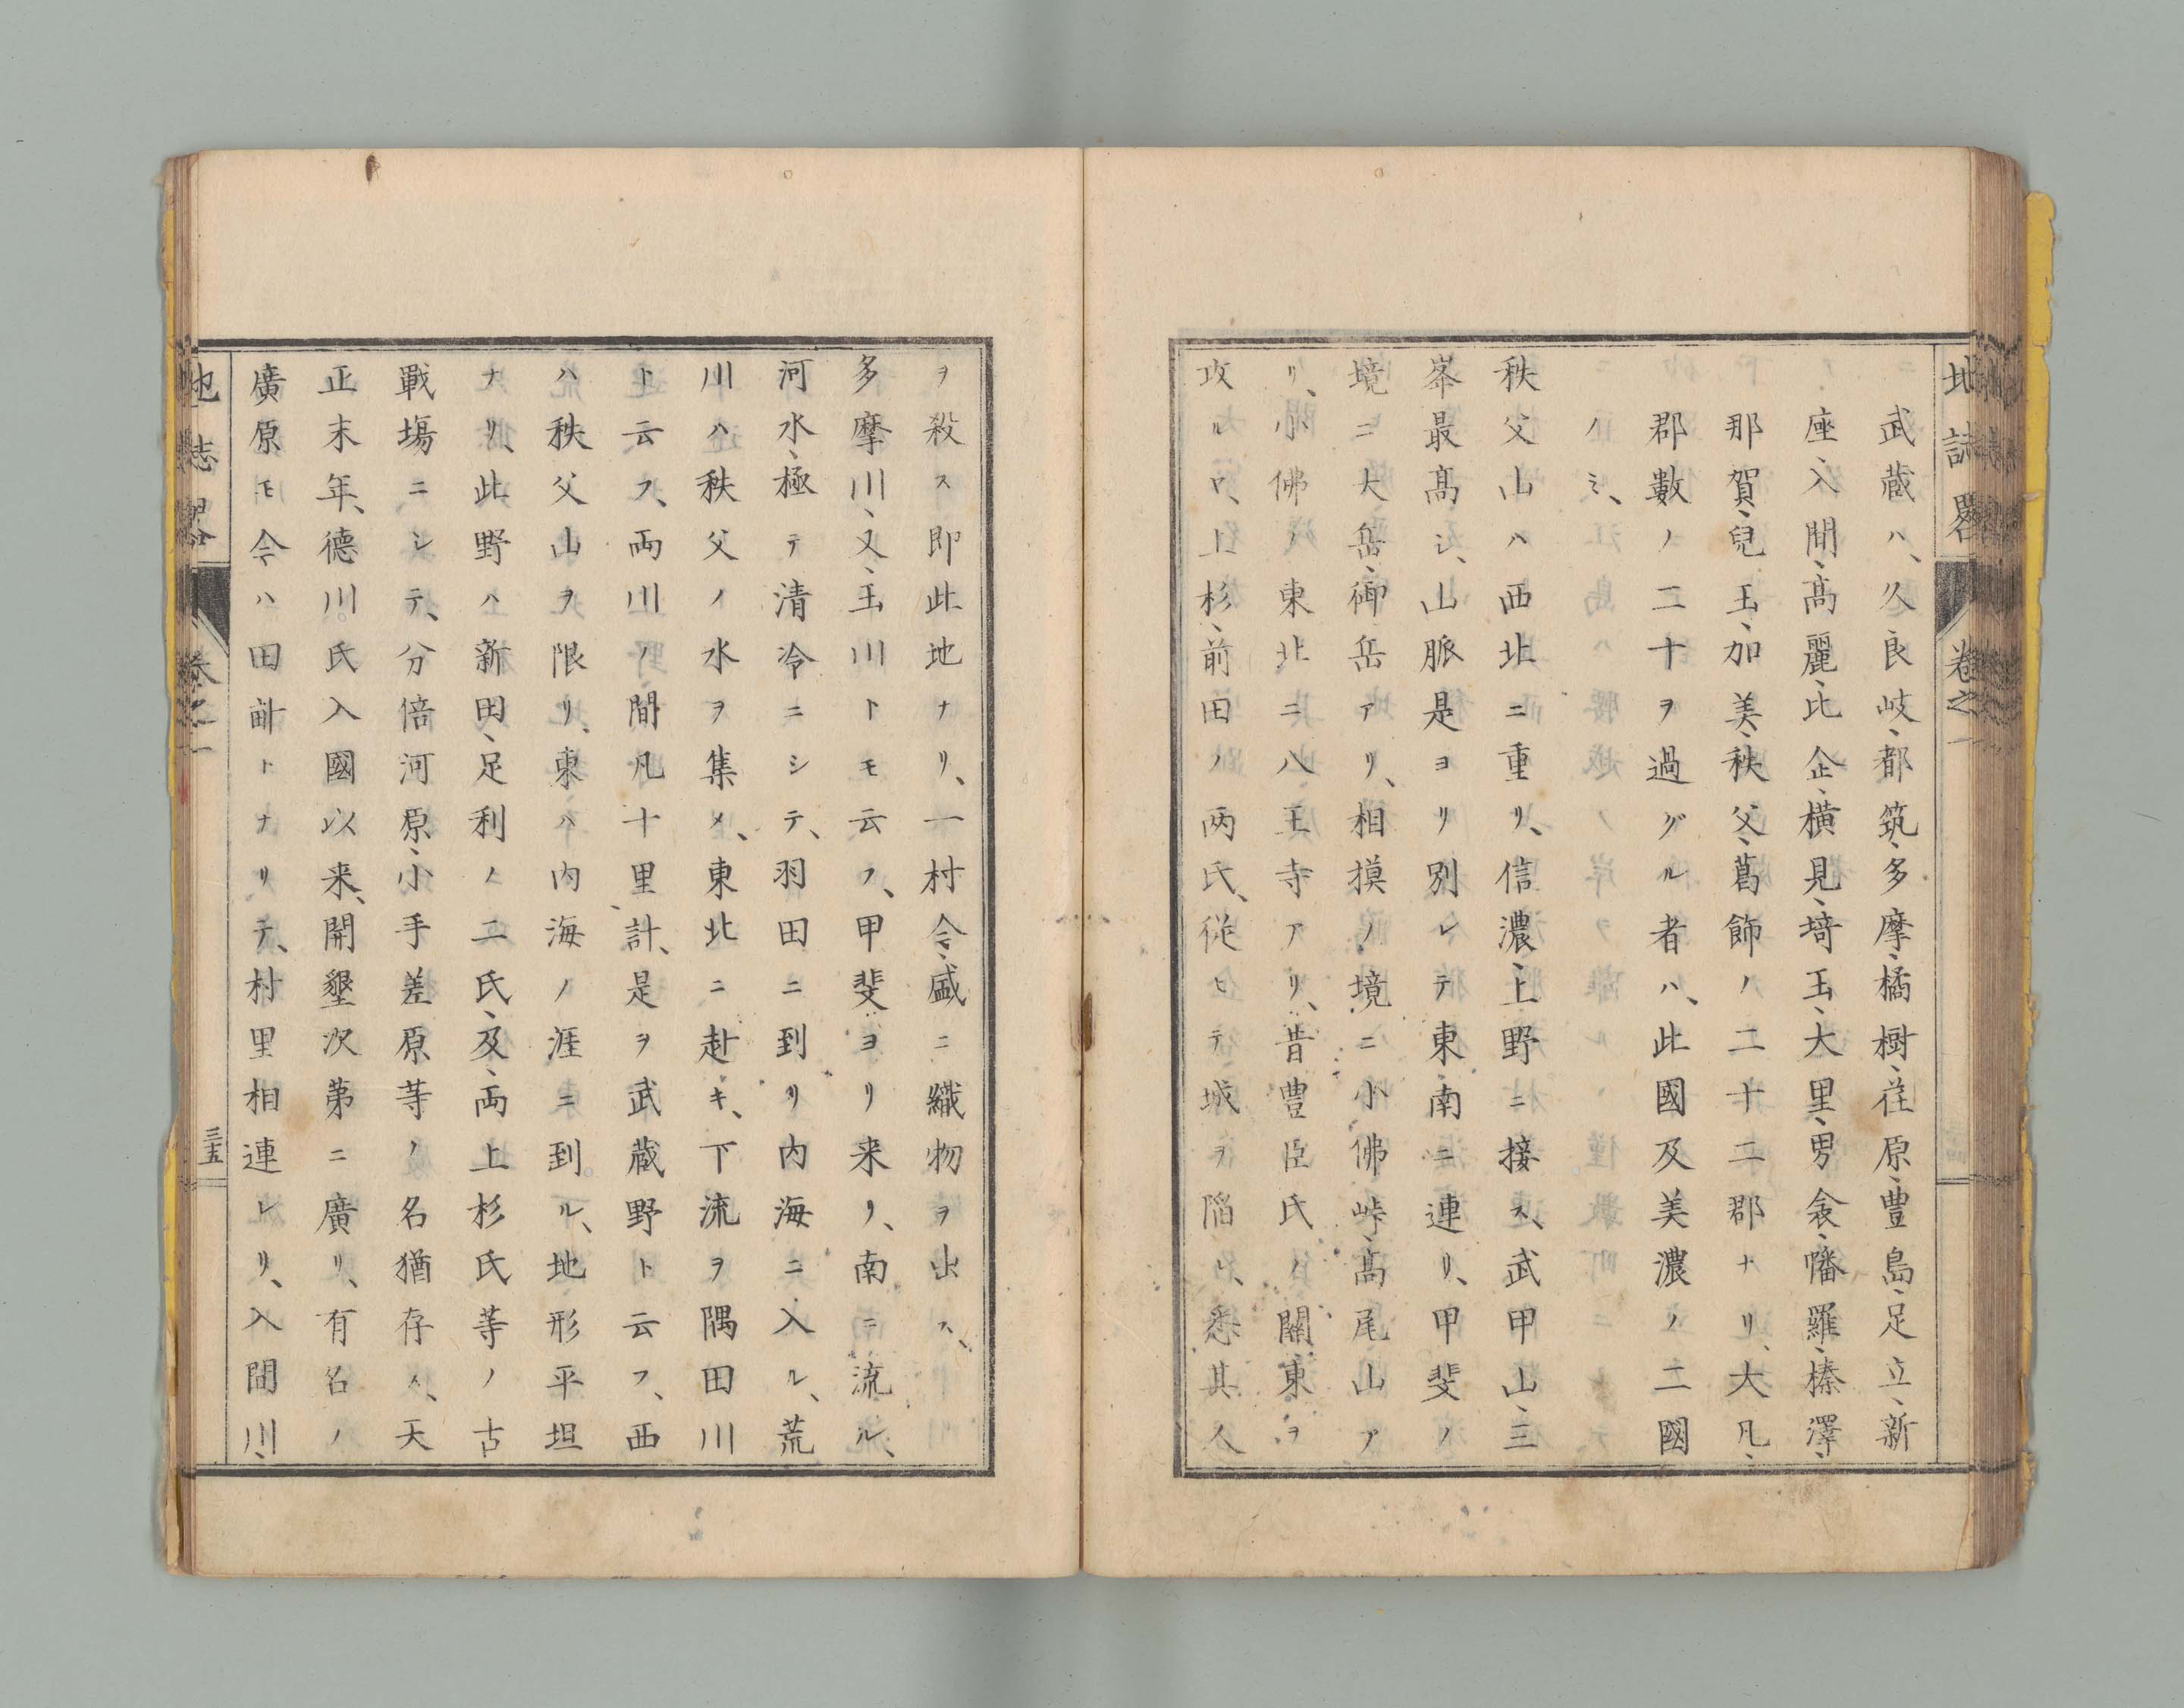 地誌畧 卷之一
武藏ハ、久良岐、都筑、多摩、橘樹、荏原、豊島、足立、新
座、入間、髙麗、比企、橫見、埼玉、大里、男衾、幡羅、榛澤、
那賀、兒玉、加美、秩父、葛飾ノ二十二郡ナリ、大凡、
郡數ノ二十ヲ過グル者ハ、此國及美濃ノ二國
ノミ、
秩父山ハ西北ニ重リ、信濃、上野ニ接ス、武甲山、三
峯最髙シ、山脈是ヨリ別レテ東南ニ連リ、甲斐ノ
境ニ大岳、御岳アリ、相摸ノ境ニ小佛峠、髙尾山ア
リ、小佛ノ東北ニ八王寺アリ、昔豊臣氏ノ關東ヲ
攻ルヤ、上杉、前田ノ兩氏、從ヒテ城ヲ陷レ、悉其人
ヲ殺ス即此地ナリ、一村今盛ニ織物ヲ出ス、
多摩川、又玉川トモ云フ、甲斐ヨリ来リ、南ニ流ル、
河水、極テ清冷ニシテ、羽田ニ到リ内海ニ入ル、荒
川ハ秩父ノ水ヲ集メ、東北ニ赴キ、下流ヲ隅田川
ト云フ、兩川ノ間凡十里計、是ヲ武藏野ト云フ、西
ハ秩父山ヲ限リ、東ハ内海ノ涯ニ到ル、地形平坦
ナリ、此野ハ新田、足利ノ二氏、及、兩上杉氏等ノ古
戰塲ニシテ、分倍河原、小手差原等ノ名猶存ス、天
正末年、德川氏入國以来、開墾次第ニ廣リ、有名ノ
廣原モ今ハ田畊トナリテ、村里相連レリ、入間川、
地誌畧 卷之一 三五